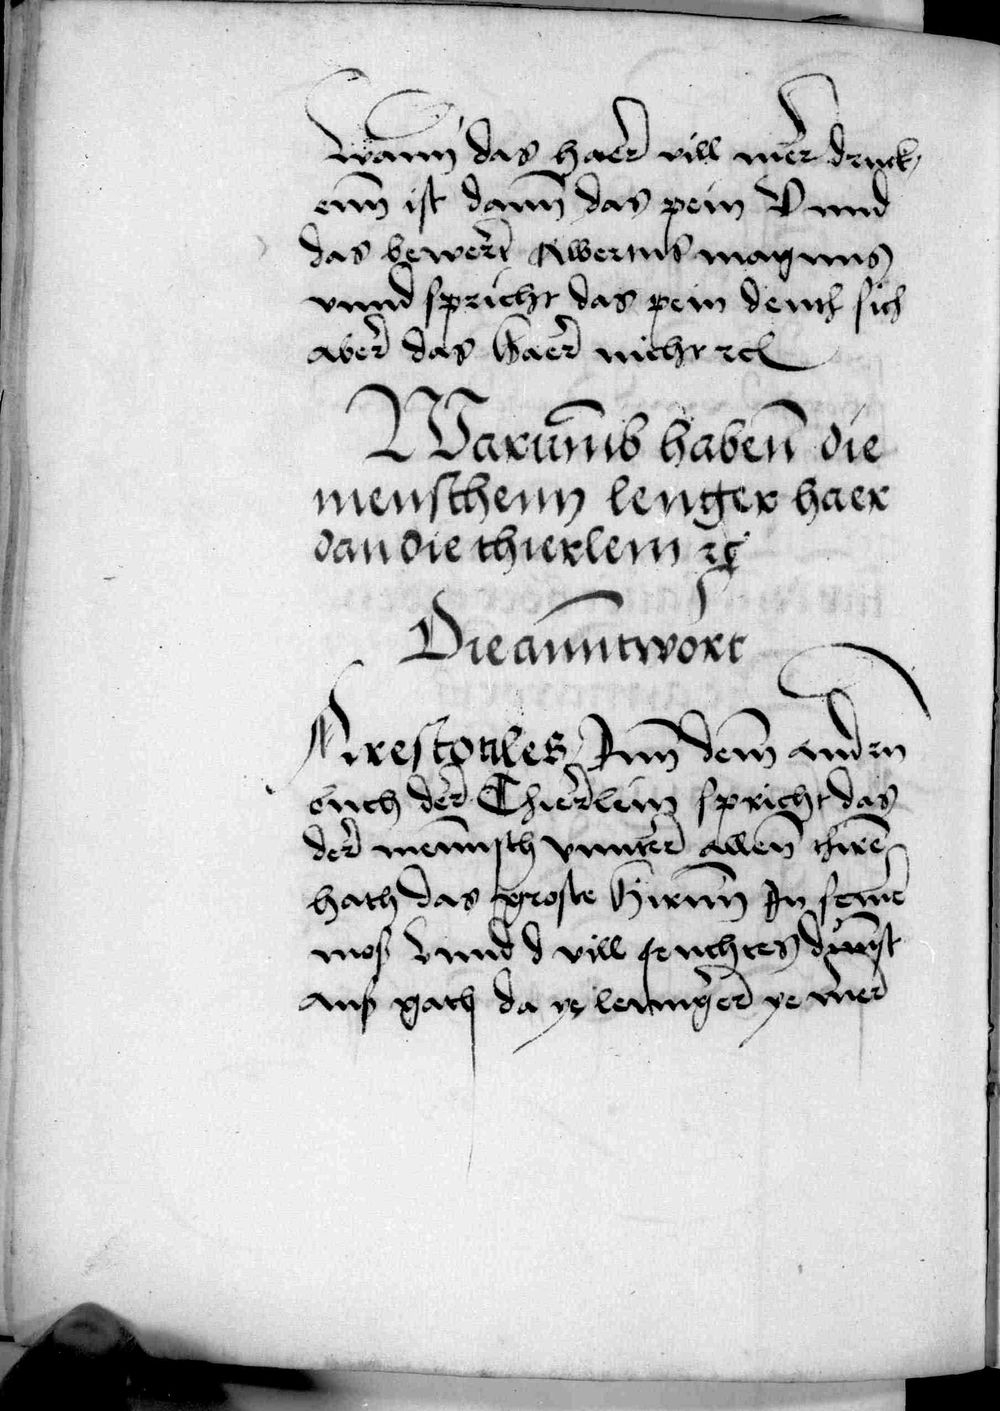 Wann das haer vill mer druck,
enn ist dann das pein Vnnd
das bewert Albertus magnus
vnnd spricht das pein denth sich
aber das Haer nicht rcl
Warumb habenn die
menschenn lenger haer
dan die thierlein rc
Die anntwort
Arestotiles Inn dem andrn
buch der Thierlein spricht das
der mennsch vnnter allen thiren
hath das groste Hirnn In seiner
mos Vnnd d vill feuchtes dunst
aus gath da ye lennger ye mer